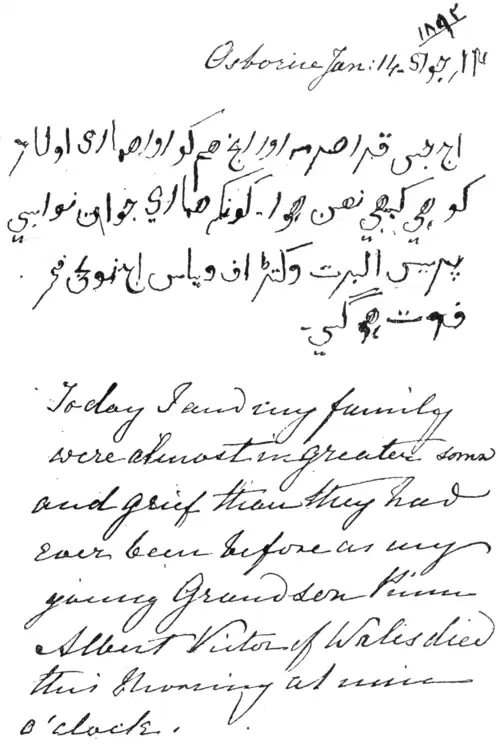 ۱۸۹۲
Osborne Jan: 14
اج جس صدمہ اور ہم کو ہماری اولاد
کو ہی کبھی نہن ہوا۔ کونکہ ہماری جوان نواسی
پرنس البرت وکٹر اف ویلس اج فجر
فوت ہو گیی۔
Today I and my family
were almost in greater sorrow
and grief than they had
ever been before as my
young Grandson Prince
Albert Victor of Wales died
this morning at nine
o'clock.